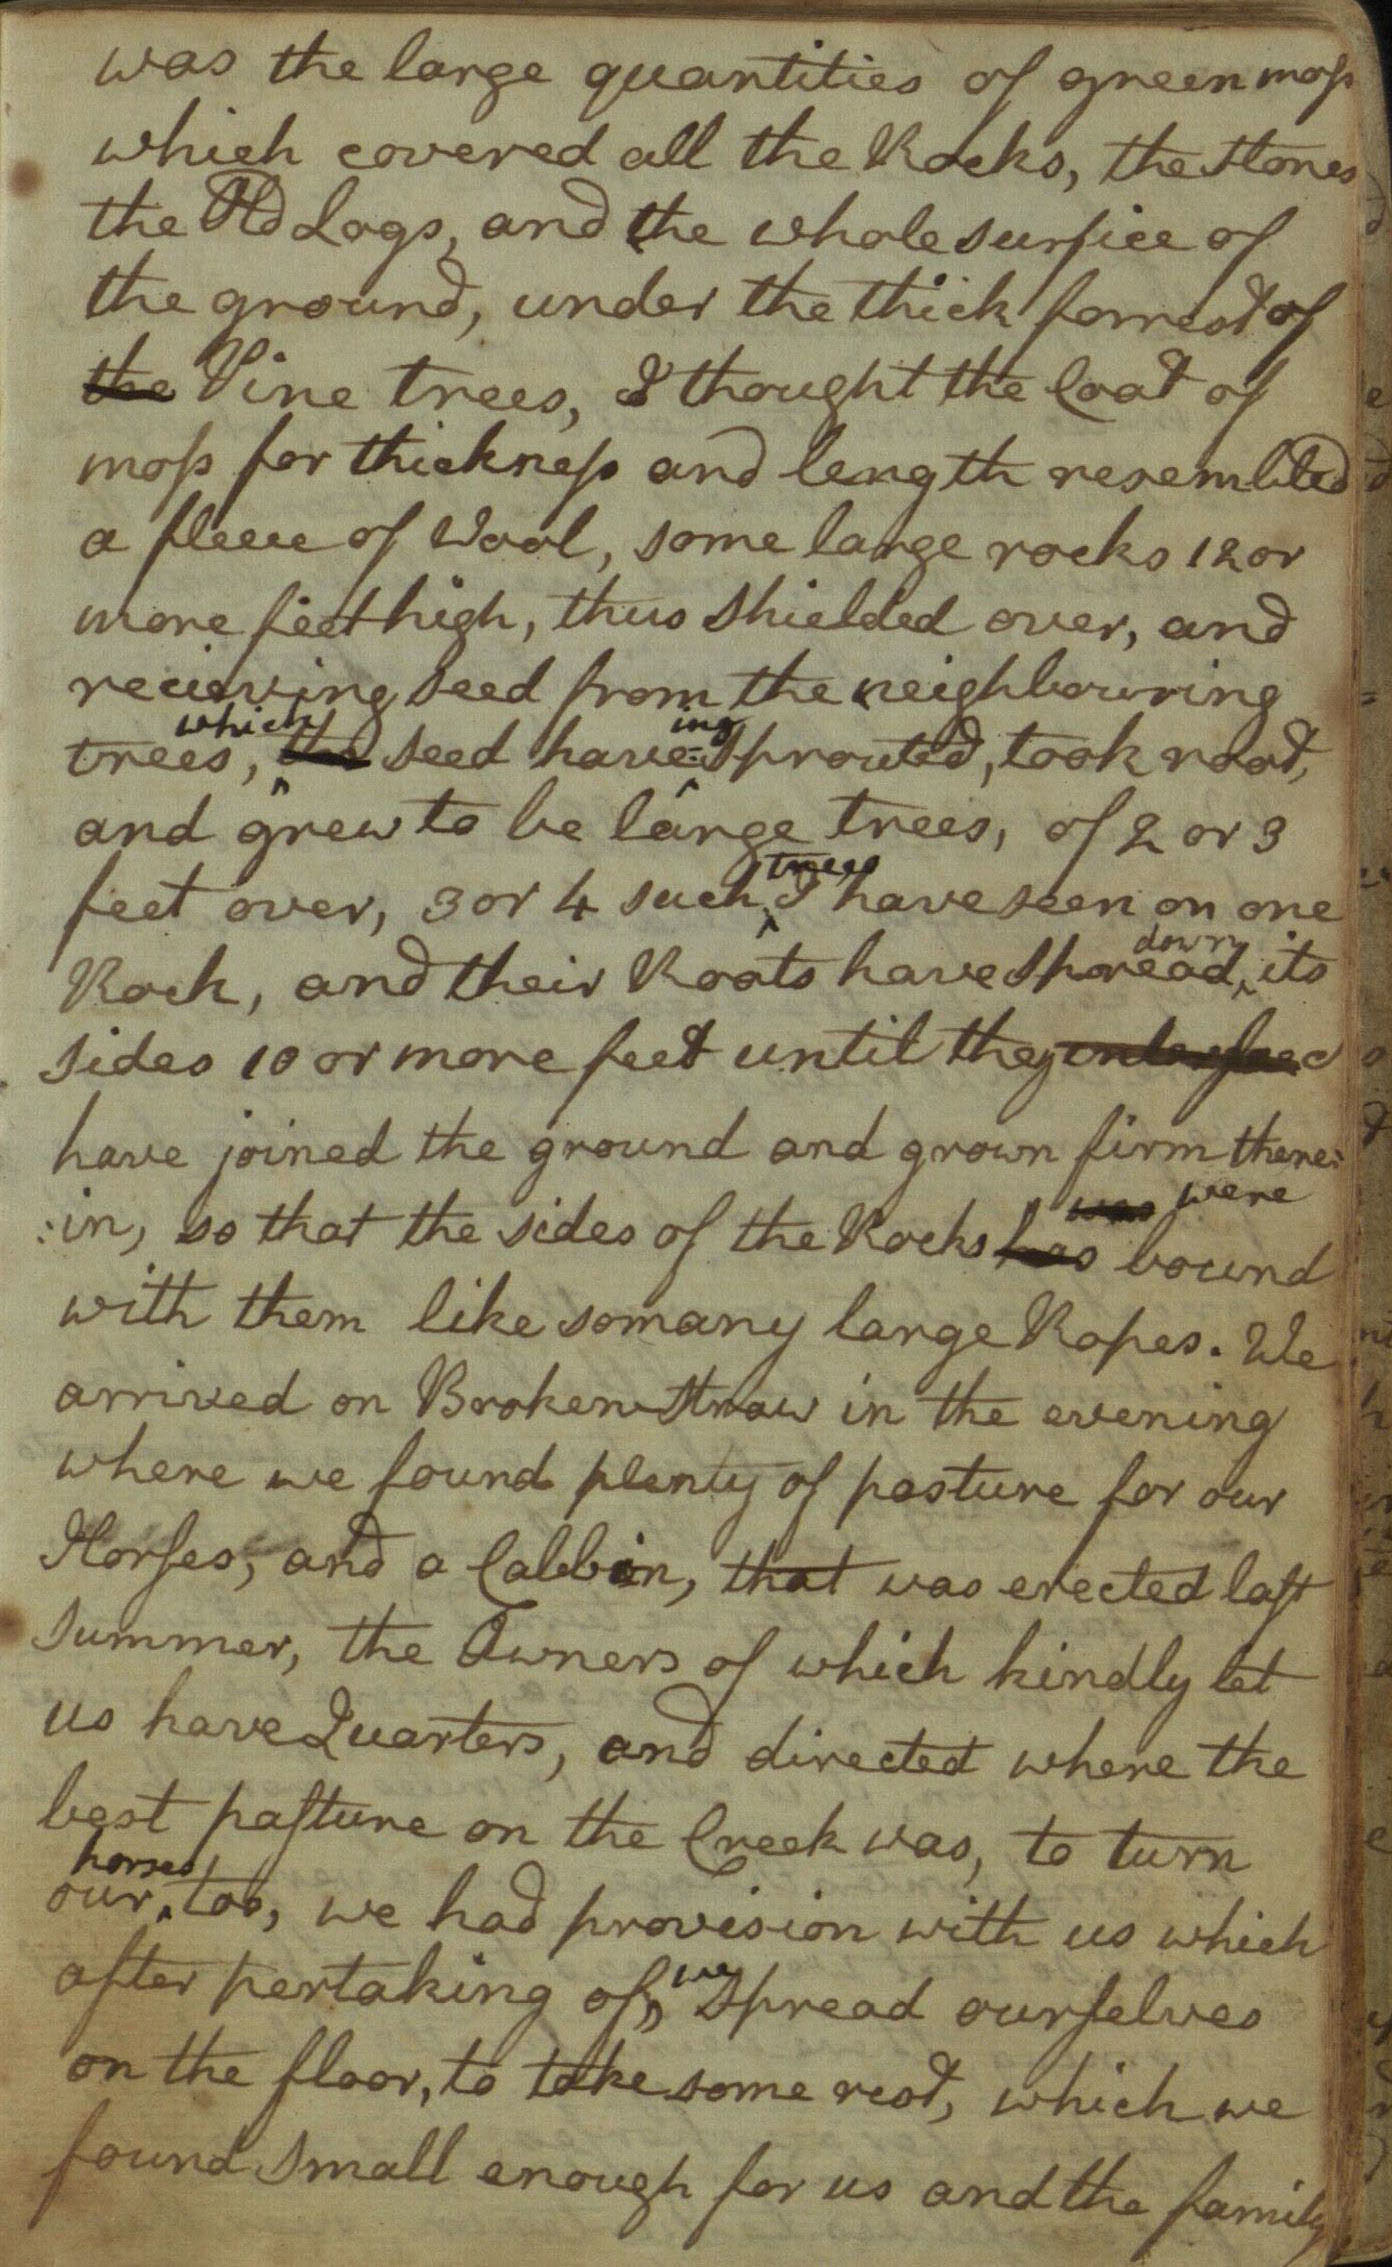 was the large quantities of green moſs
which covered all the Rocks, the stones
the Old Logs, and the whole surfice of
the ground, under the thick forrest of
the Pine trees, I thought the Coat of
moſs for thickneſs and length resembled
a fleece of Wool, some large rocks 12 or
more feet high, thus shielded over, and
recieving seed from the neighbouring
trees, which the seed have=ing sprouted, took root,
and grew to be large trees, of 2 or 3
feet over, 3 or 4 such trees I have seen on one
Rock, and their Roots have spread down its
sides 10 or more feet until they
have joined the ground and grown firm there=
:in, so that the sides of the Rocks has was were bound
with them like somany large Ropes. We
arrived on Brokenstraw in the evening
where we found plenty of pasture for our
Horſes, and a Cabbin, that was erected laſt
summer, the Owners of which kindly let
us have Quarters, and directed where the
best paſture on the Creek was, to turn
our horses too, we had provision with us which
after pertaking of, we spread ourſelves
on the floor, to take some rest, which we
found small enough for us and the family